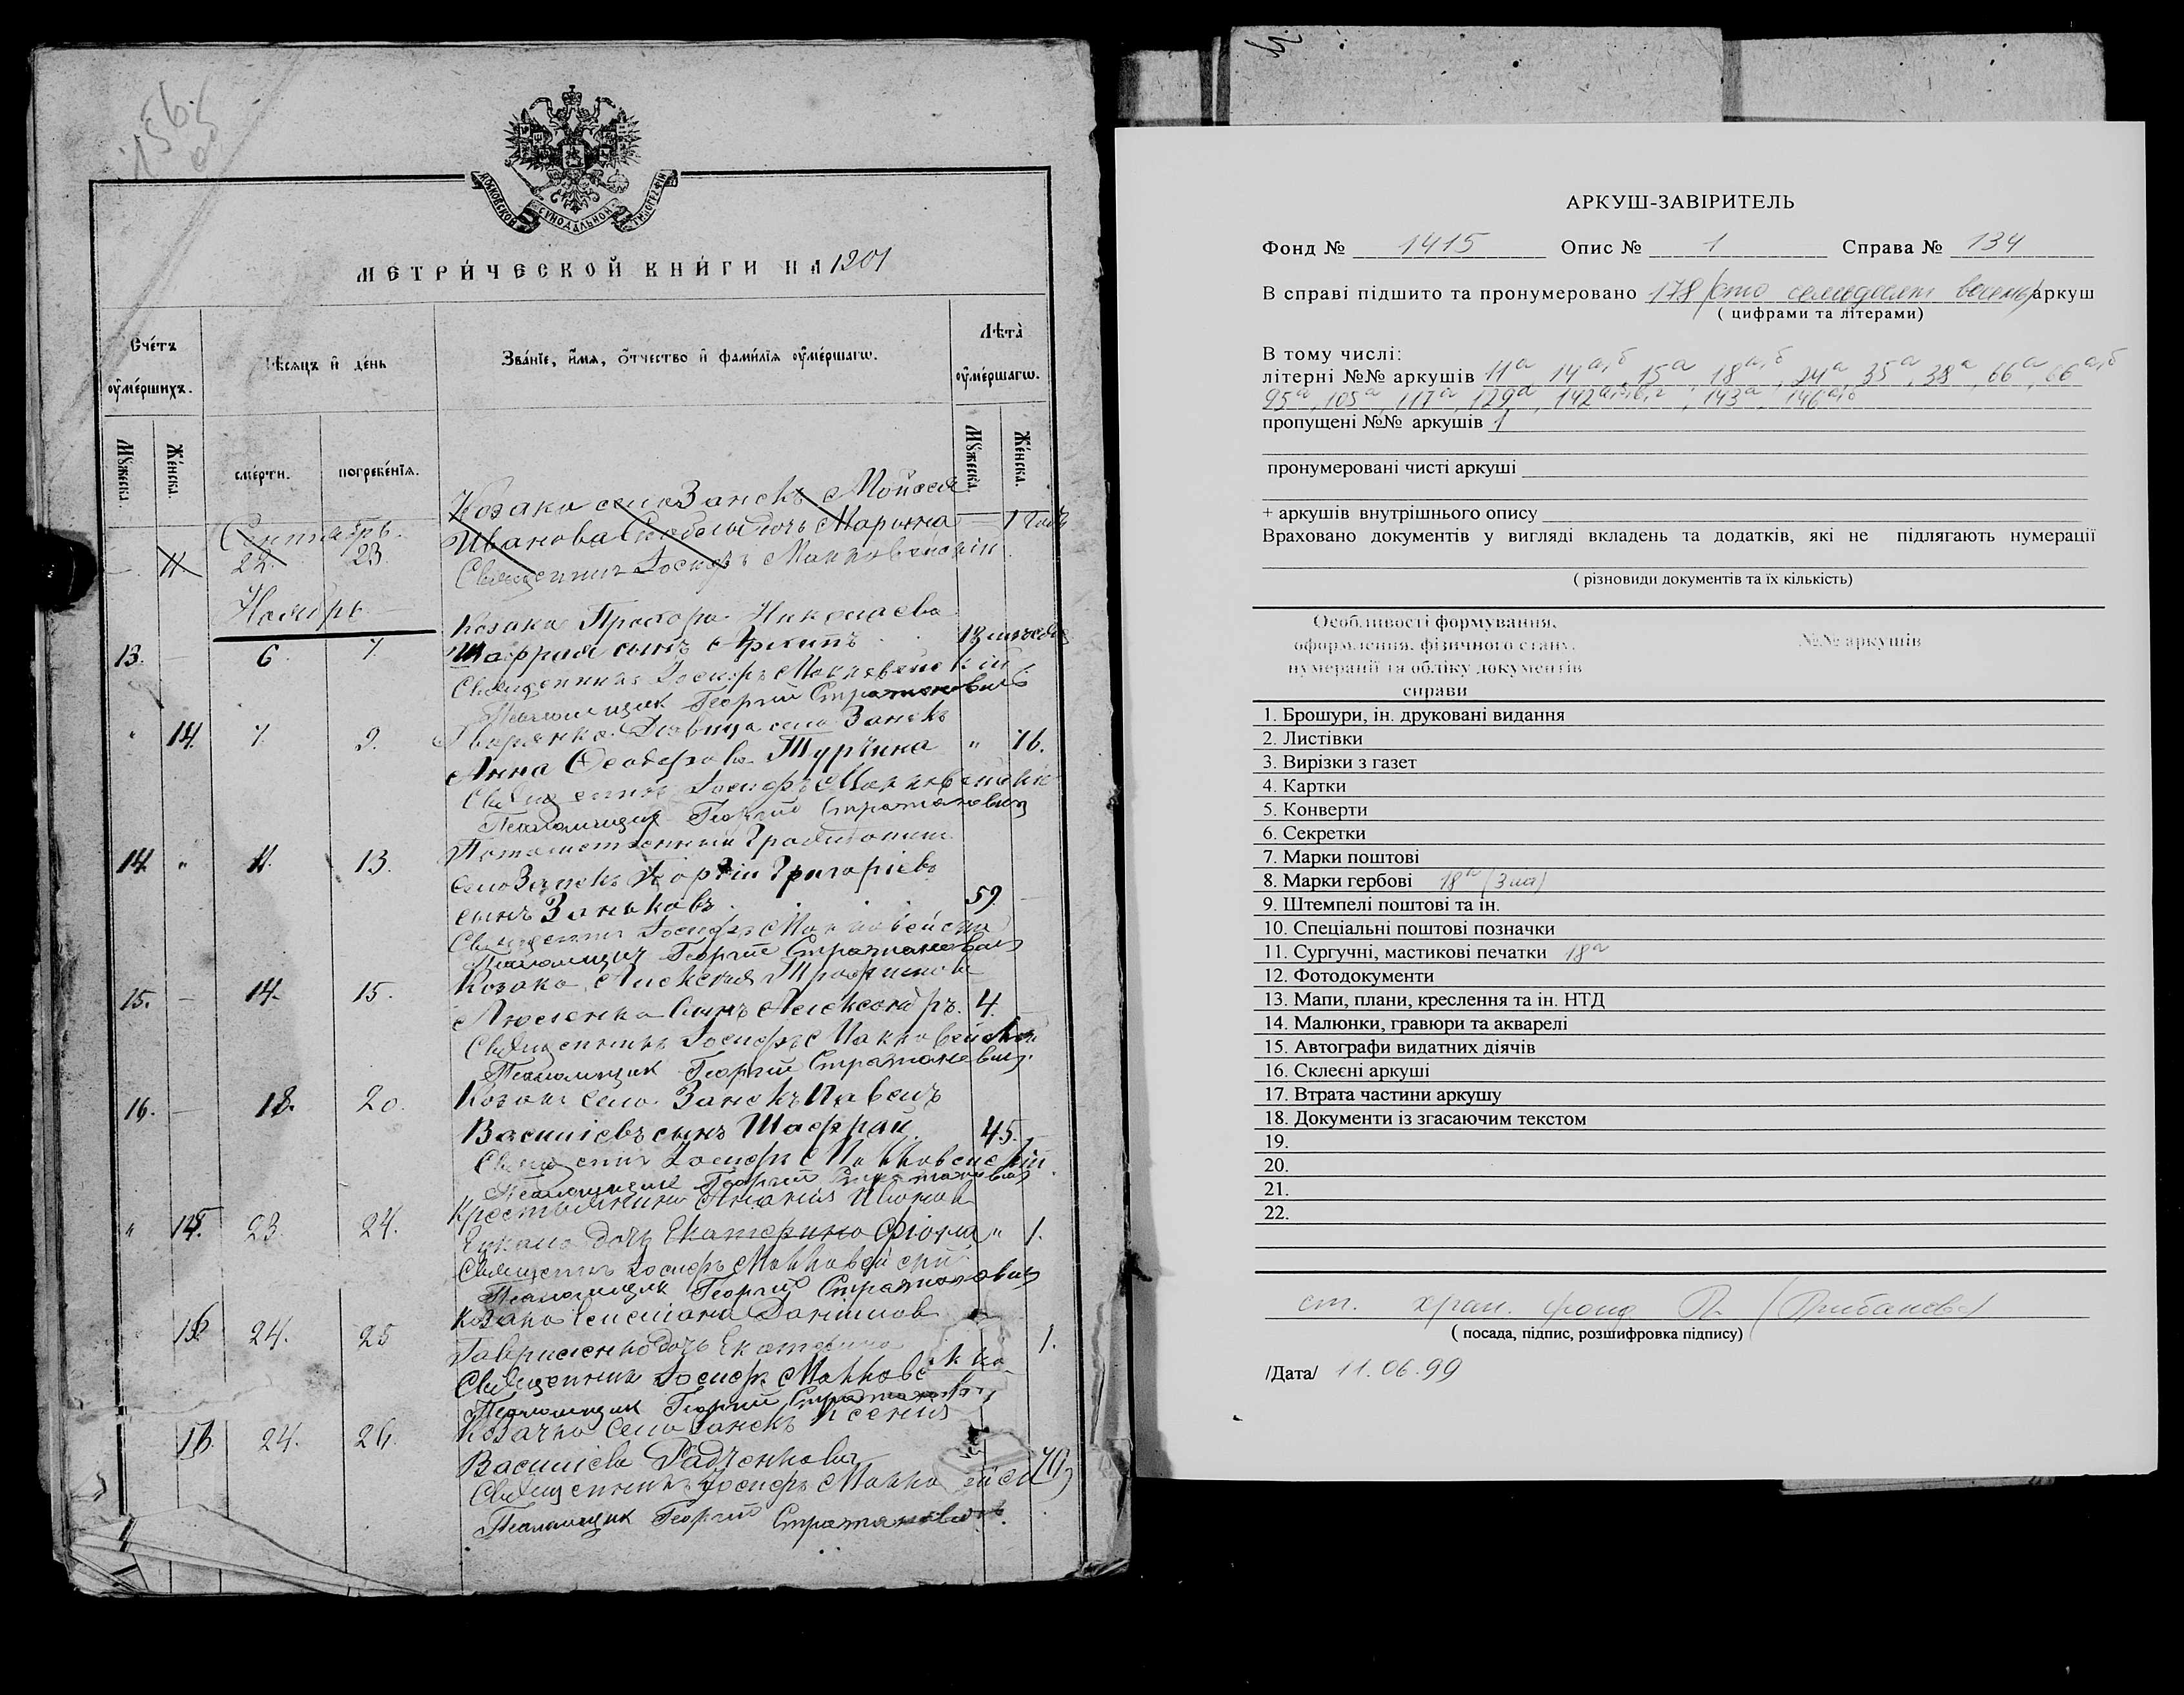 156
об
МОСКОВСКОЙ СѴНОДАЛЬНОЙ ТИПОГРАФІИ
МЕТРИ́ЧЕСКОЙ КНИ́ГИ НА 1901
Сче́тъ ᲂу҆ме́ршихъ.
Мѣ́сяцъ и҆ де́нь
Зва́нїе, и҆́мя, ѻ҆́тчество и҆ фами́лїя ᲂу҆ме́ршагѡ.
Лѣта̀ ᲂу҆ме́ршагѡ.
Мꙋ́жеска.
Же́нска.
сме́рти.
погребе́нїя.
Мꙋ́жеска.
Же́нска.
Сентябрь.
Козака села Занекъ Мойсея
22. 23. Иванова дочь Марина — 1
Священникъ Іосифъ Маккавейскій
Ноябрь
Козака Прохора Николаева
13. — 6. 7. Шафрая сынъ Архипъ
Священникъ Іосифъ Маккавейскій
Псаломщикъ Георгій Стратановичъ
" 14. 7. 9. Дворянка Дѣвица села Занекъ
Анна Ѳеодорова Турчина " 76.
Священникъ Іосифъ Маккавейскій
Псаломщикъ Георгій Стратановичъ
14. " 11. 13. Потомственный
села Занекъ Георгій Григоріевъ
сынъ Заньковъ. 59.
Священникъ Іосифъ Маккавейскій
Псаломщикъ Георгій Стратановичъ
15. — 14. 15. Козака Алексея Трофимова
сынъ Александръ. 4.
Священникъ Іосифъ Маккавейскій
Псаломщикъ Георгій Стратановичъ.
16. — 18. 20. Козакъ села Занекъ Павелъ
Василіевъ сынъ Шафрай. 45.
Священникъ Іосифъ Маккавейскій
Псаломщикъ Георгій Стратановичъ
Крестьянина Ананія
" 15. 23. 24. дочь Екатерина Фіокла " 1.
Священникъ Іосифъ Маккавейскій
Псаломщикъ Георгій Стратановичъ
Козака Даніилова
24. 25 Гавриленко дочь Екатерина 1.
Священникъ Іосифъ Маккаве
Псаломщикъ Георгій Стратановичъ
Козачка села Занекъ Ксенія
24. 26. Василіева Радченкова 70
Священникъ Іосифъ Макка ейск
Псаломщикъ Георгій Стратановичъ.
АРКУШ-ЗАВІРИТЕЛЬ
Фонд № 1415 Опис № 1 Справа № 134
В справі підшито та пронумеровано 178 /сто семьдесят восемь/ аркуш
( цифрами та літерами)
В тому числі:
літерні №№ аркушів 11а 14а,б, 15а 18а,б, 24а 35а, 38а, 66а, 66а,б
95а, 105а, 117а, 129а, 142а,б,в,г, 143а, 146а,б
пропущені №№ аркушів 1
пронумеровані чисті аркуші
+ аркушів внутрішнього опису
Враховано документів у вигляді вкладень та додатків, які не підлягають нумерації
( різновиди документів та їх кількість)
Особливості формування, оформлення, фізичного стану, нумерації та обліку документів справи
№№ аркушів
1. Брошури, ін. друковані видання
2. Листівки
3. Вирізки з газет
4. Картки
5. Конверти
6. Секретки
7. Марки поштові
8. Марки гербові 18а (3 шт)
9. Штемпелі поштові та ін.
10. Спеціальні поштові позначки
11. Сургучні, мастикові печатки 18а
12. Фотодокументи
13. Мапи, плани, креслення та ін. НТД
14. Малюнки, гравюри та акварелі
15. Автографи видатних діячів
16. Склеєні аркуші
17. Втрата частини аркушу
18. Документи із згасаючим текстом
19.
20.
21.
22.
ст. хран. фонд
( посада, підпис, розшифровка підпису)
/Дата/ 11.06.99